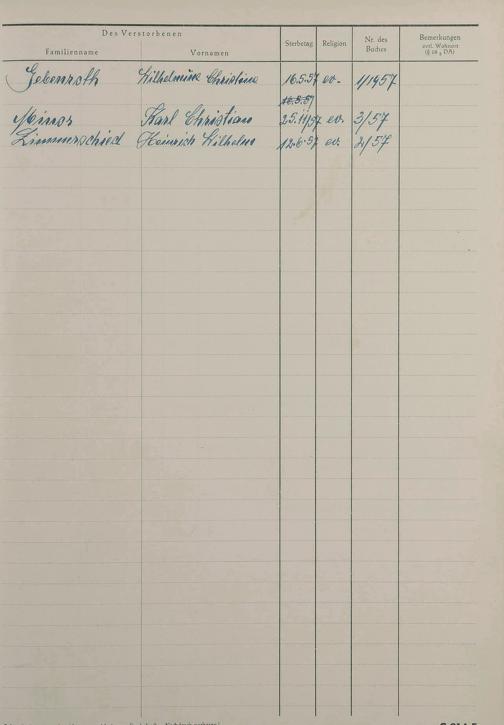 Des Verstorbenen
Familienname Vornamen Sterbetag Religion Nr. des Buches Bemerkungen evtl. Wohnort (§ 28, DA)
Gebenroth Wilhelmine Christine 16.5.57 ev. 1/1957
Minor Karl Christian 25.11/57 ev. 3/57
Zimmerschied Heinrich Wilhelm 12.6.57 ev. 2/57